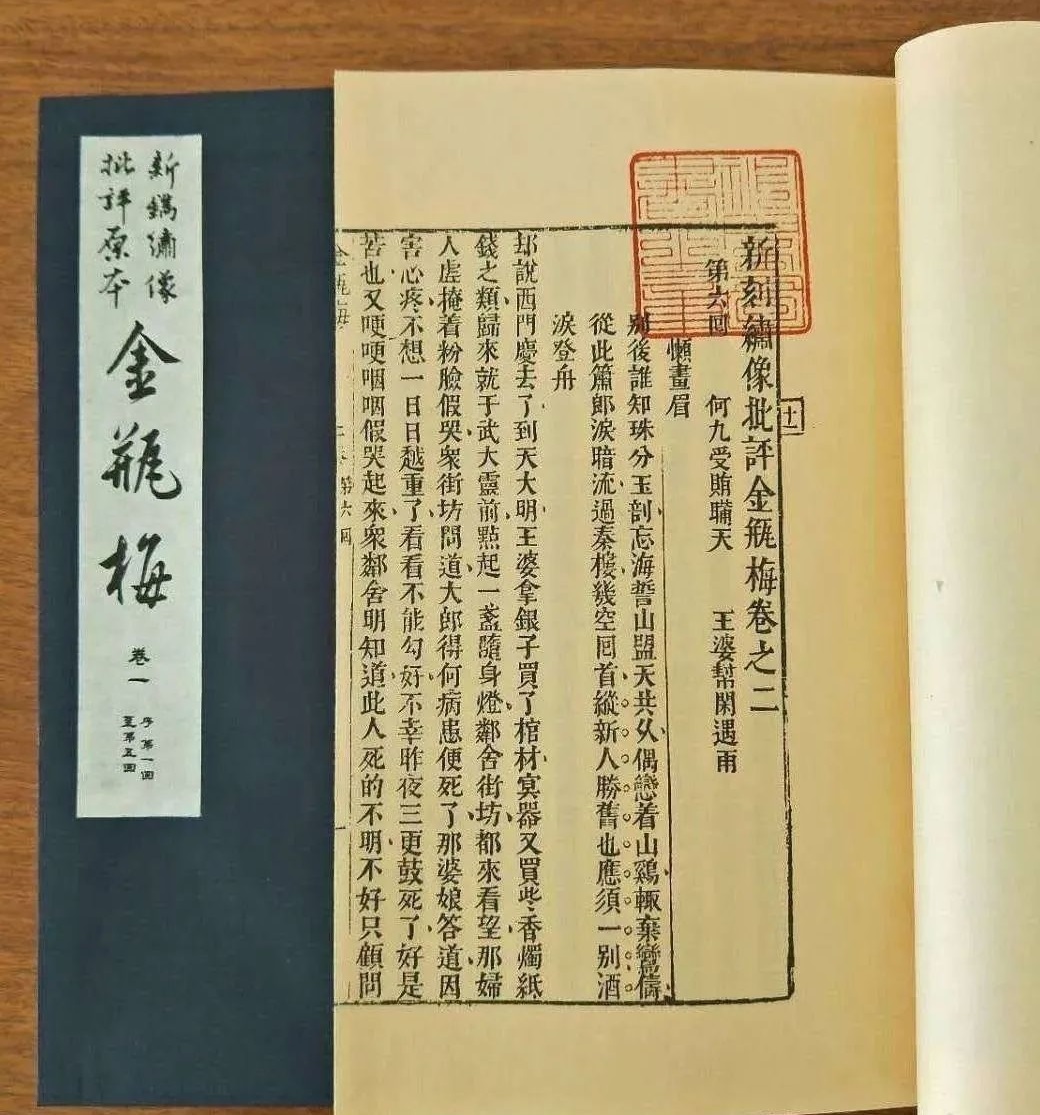 新鐫繡像
批評原本
金瓶梅
卷一
序 第一回
至第五回
新刻繡像批評金瓶梅卷之二
第六回 何九受賄瞞天 王婆幫閑遇雨
懶畫眉
別後誰知珠分玉剖忘海誓山盟天共久偶戀着山鷄輙棄鸞儔
從此簫郎淚暗流過秦樓幾空回首縱新人勝舊也應須一别酒
淚登舟
却說西門慶去了到天大明王婆拿銀子買了棺材冥器又買些香燭紙
錢之類歸來就于武大靈前點起一盞隨身燈鄰舍街坊都來看望那婦
人虛掩着粉臉假哭衆街坊問道大郎得何病患便死了那婆娘答道因
害心疼不想一日日越重了看看不能勾好不幸昨夜三更鼓死了好是
苦也又哽哽咽咽假哭起來衆鄰舍明知道此人死的不明不好只顧問
金瓶梅 第六回